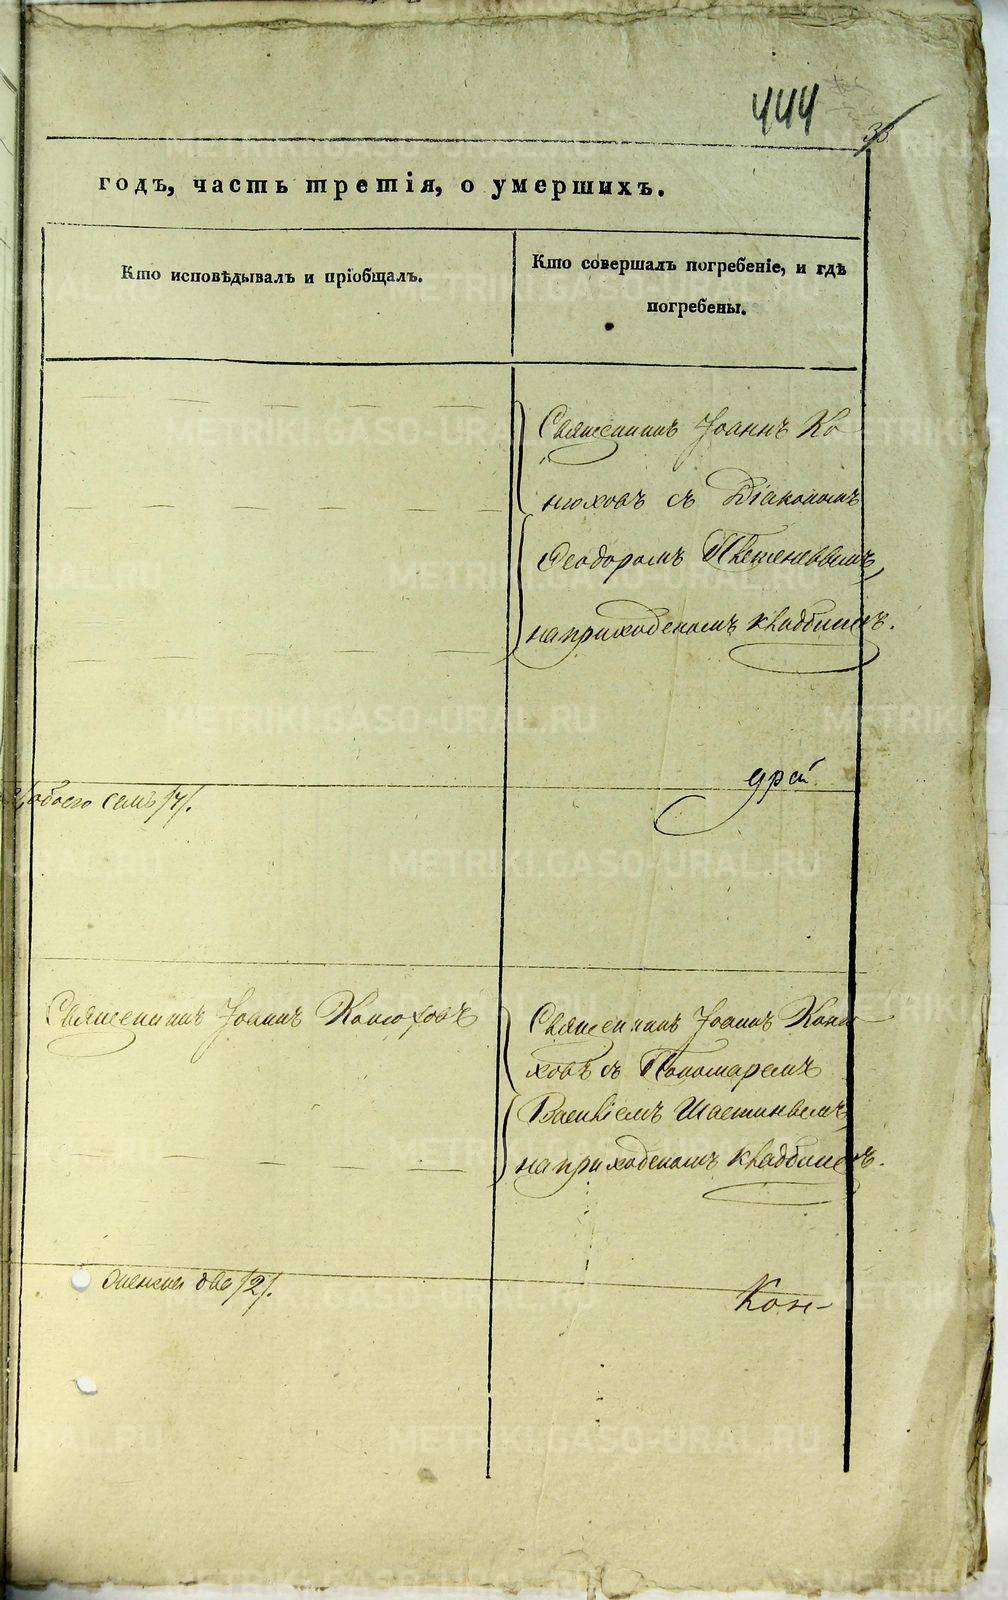 444
36
годъ, часть третія, о умершихъ.
Кто исповѣдывалъ и пріобщалъ.
Кто совершалъ погребеніе, и гдѣ
погребены.
Священникъ Іоаннъ Ко
нюховъ съ Діакономъ
Ѳеодоромъ
на приходскомъ кладбищѣ.
обоего семь /7/.
Священникъ Іоаннъ Конюховъ
Священникъ Іоаннъ Коню
ховъ съ Пономаремъ
на приходскомъ кладбищѣ.
два /2/.
Кон-
METRIKI.GASO-URAL.RU